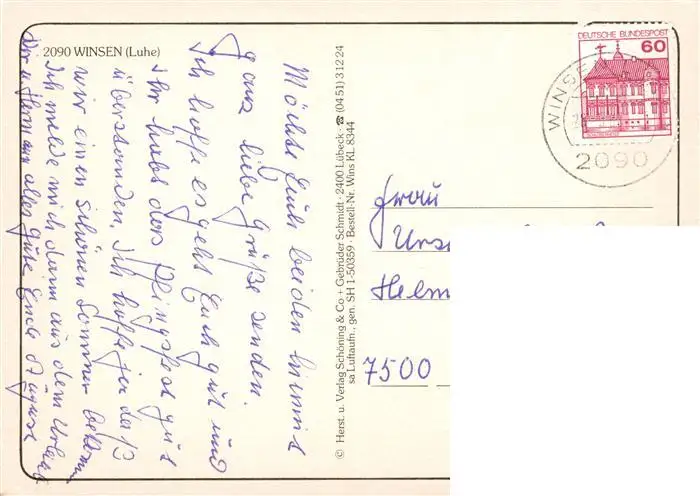 2090 WINSEN (Luhe)
Möchte Euch beiden
ganz liebe Grüße senden.
Ich hoffe es geht Euch gut und
Ihr habt das Pfingsfest gut
überstanden. Ich hoffe
wir einen schönen Sommer bekomm
Ich melde mich dann aus dem Urlaub
alles gute Ende August
© Herst. u. Verlag Schöning & Co + Gebrüder Schmidt · 2400 Lübeck · ☎ (04 51) 3 12 24
sa Luftaufn., gen.: SH 1-50359 · Bestell-Nr. Wins KL 8344
DEUTSCHE BUNDESPOST
60
WINSE
2090
Frau
Urs
Helm
7500